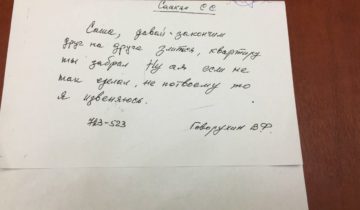 Саша, давай закончим
друг на друга злиться, квартиру
ты забрал Ну а я если не
так сделал, не потвоему то
я извеняюсь.
Говорухин В.Ф.